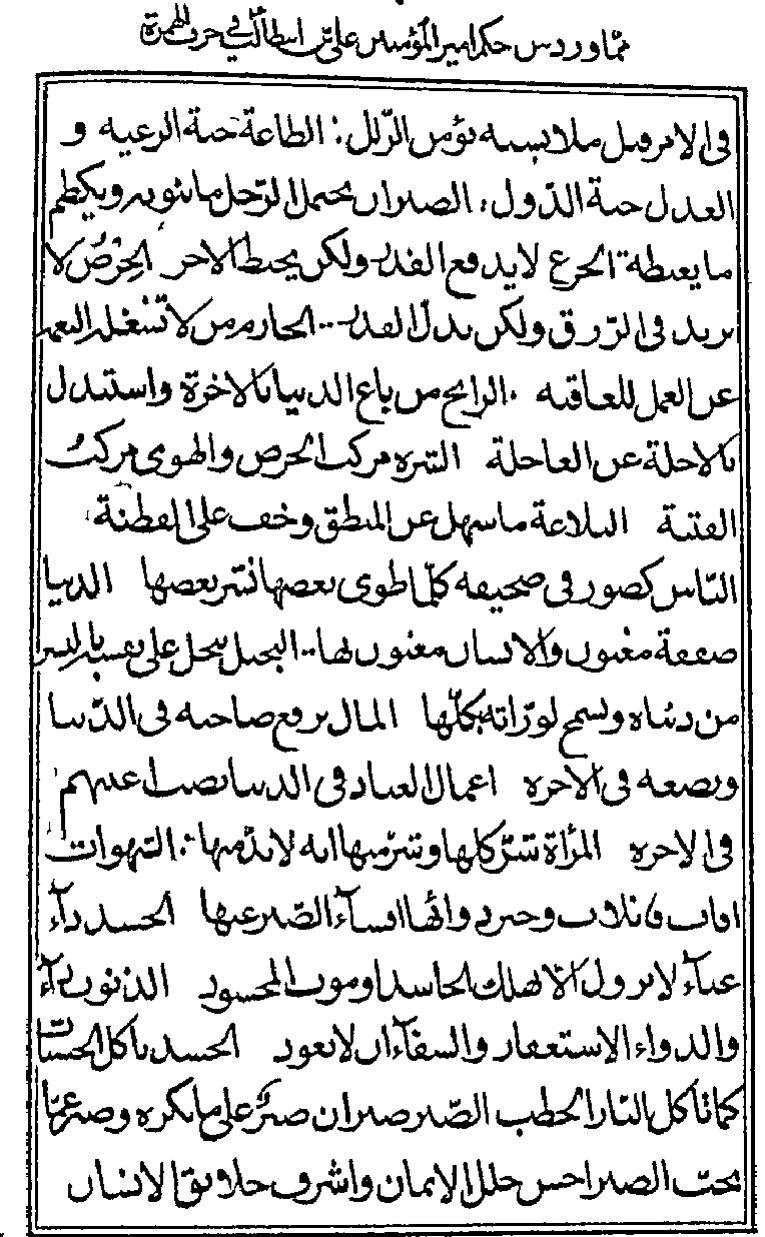 مما ورد من حكم امير المؤمنين علي بن ابيطالب في حرف الهمزة
في الامر قبل ملابسته تؤمن الزلل الطاعة جنة الرعيه و
العدل جنة الدّول الصبر ان يحتمل الرّجل ما ينوبه ويكظم
ما يغيظه الجزع لا يدفع القدر ولكن يحبط الاجر الحِرْصُ لا
يزيد في الرّزق ولكن يذلّ القدر الحازم من لا تشغله النعم
عن العمل للعاقبه الرابح من باع الدنيا بالاخرة واستبدل
بالاجلة عن العاجلة الشره مركب الحرص والهوى مركب
الفتنة البلاغة ما سهل عن المنطق وخف على الفطنة
النّاس كصور في صحيفه كلّما طوى بعضها نشر بعضها الدنيا
صفقة مغبون والانسان مغبون بها البخيل يبخل على نفسه باليسير
من دنياه ويسمح لورّاثه بكلّها المال يرفع صاحبه في الدّنيا
ويضعه في الاخره اعمال العباد في الدنيا نصب اعينهم
في الاخره المرأة شرّ كلها وشرّ منها انه لا بدّ منها الشهوات
افات قاتلات وخير دوائها اقتناء الصّبر عنها الحسد دآء
عيآء لا يزول الا بهلك الحاسد او موت المحسود الذنوب الدآء
والدواء الاستغفار والشفآء ان لا يعود الحسد ياكل الحسنات
كما تأكل النّار الحطب الصّبر صبران صبر على ما تكره وصبر عمّا
تحبّ الصبر احسن حلل الايمان واشرف خلائق الانسان